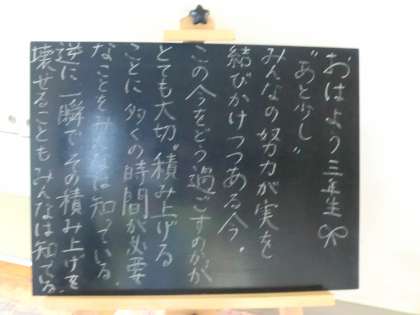 おはよう三年生
"あと少し"
みんなの努力が実を
結びかけつつある今。
この今をどう過ごすのかが
とても大切。積み上げる
ことに多くの時間が必要
なことをみんなは知っている。
逆に一瞬でその積み上げを
壊せることもみんなは知っている。